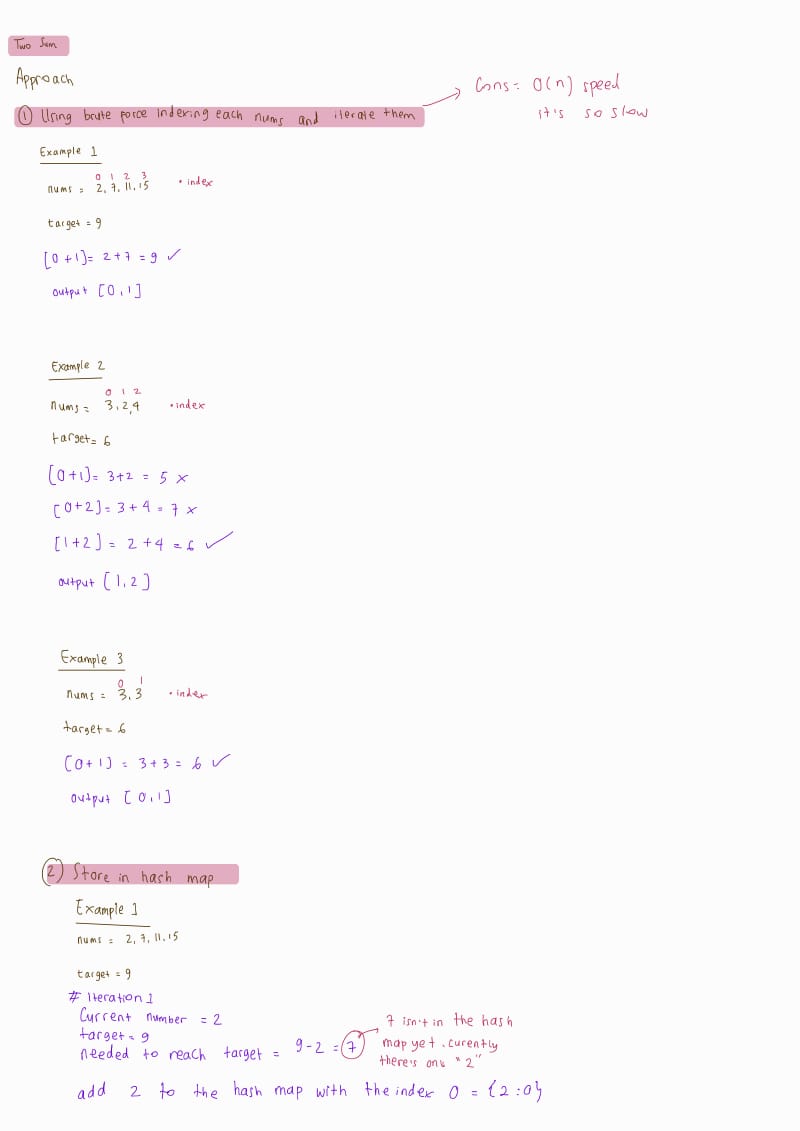 Two Sum
Approach
① Using brute force indexing each nums and iterate them
Cons = O(n) speed
it's so slow
Example 1
0 1 2 3
nums = 2, 7, 11, 15 • index
target = 9
[0 + 1] = 2 + 7 = 9 ✓
output [0, 1]
Example 2
0 1 2
nums = 3, 2, 4 • index
target = 6
[0+1] = 3+2 = 5 ×
[0+2] = 3 + 4 = 7 ×
[1+2] = 2 + 4 = 6 ✓
output [1, 2]
Example 3
0 1
nums = 3, 3 • index
target = 6
[0+1] = 3+3 = 6 ✓
output [0, 1]
② Store in hash map
Example 1
nums = 2, 7, 11, 15
target = 9
# Iteration 1
Current number = 2
target = 9
needed to reach target = 9-2 = 7
7 isn't in the hash
map yet. curently
there's one "2"
add 2 to the hash map with the index 0 = {2:0}